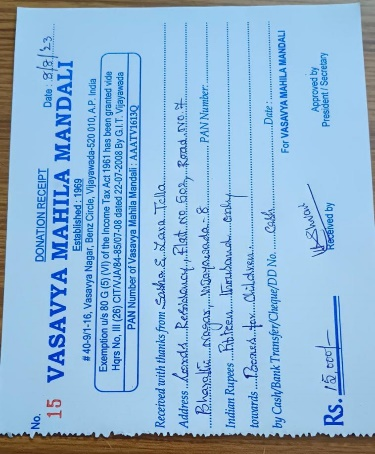 DONATION RECEIPT
No. 15 Date: 8/8/23
VASAVYA MAHILA MANDALI
Established : 1969
# 40-9/1-16, Vasavya Nagar, Benz Circle, Vijayawada-520 010, A.P. India
Exemption u/s 80 G (5) (VI) of the Income Tax Act 1961 has been granted vide
Hqrs No, III (26) CIT/VJA/84-85/07-08 dated 22-07-2008 By G.I.T. Vijayawada
PAN Number of Vasavya Mahila Mandali : AAATV1613Q
Received with thanks from Sasha & Zara Tella
Address Lords Residency, Flat no 502, Road No. 7
Bharathi nagar, Vijayawada - 8 PAN Number:
Indian Rupees Fifteen thousand only
towards Books for Children
by Cash/Bank Transfer/Cheque/DD No. Cash Date :
For VASAVYA MAHILA MANDALI
Rs. 15,000/-
Received by
Approved by
President / Secretary